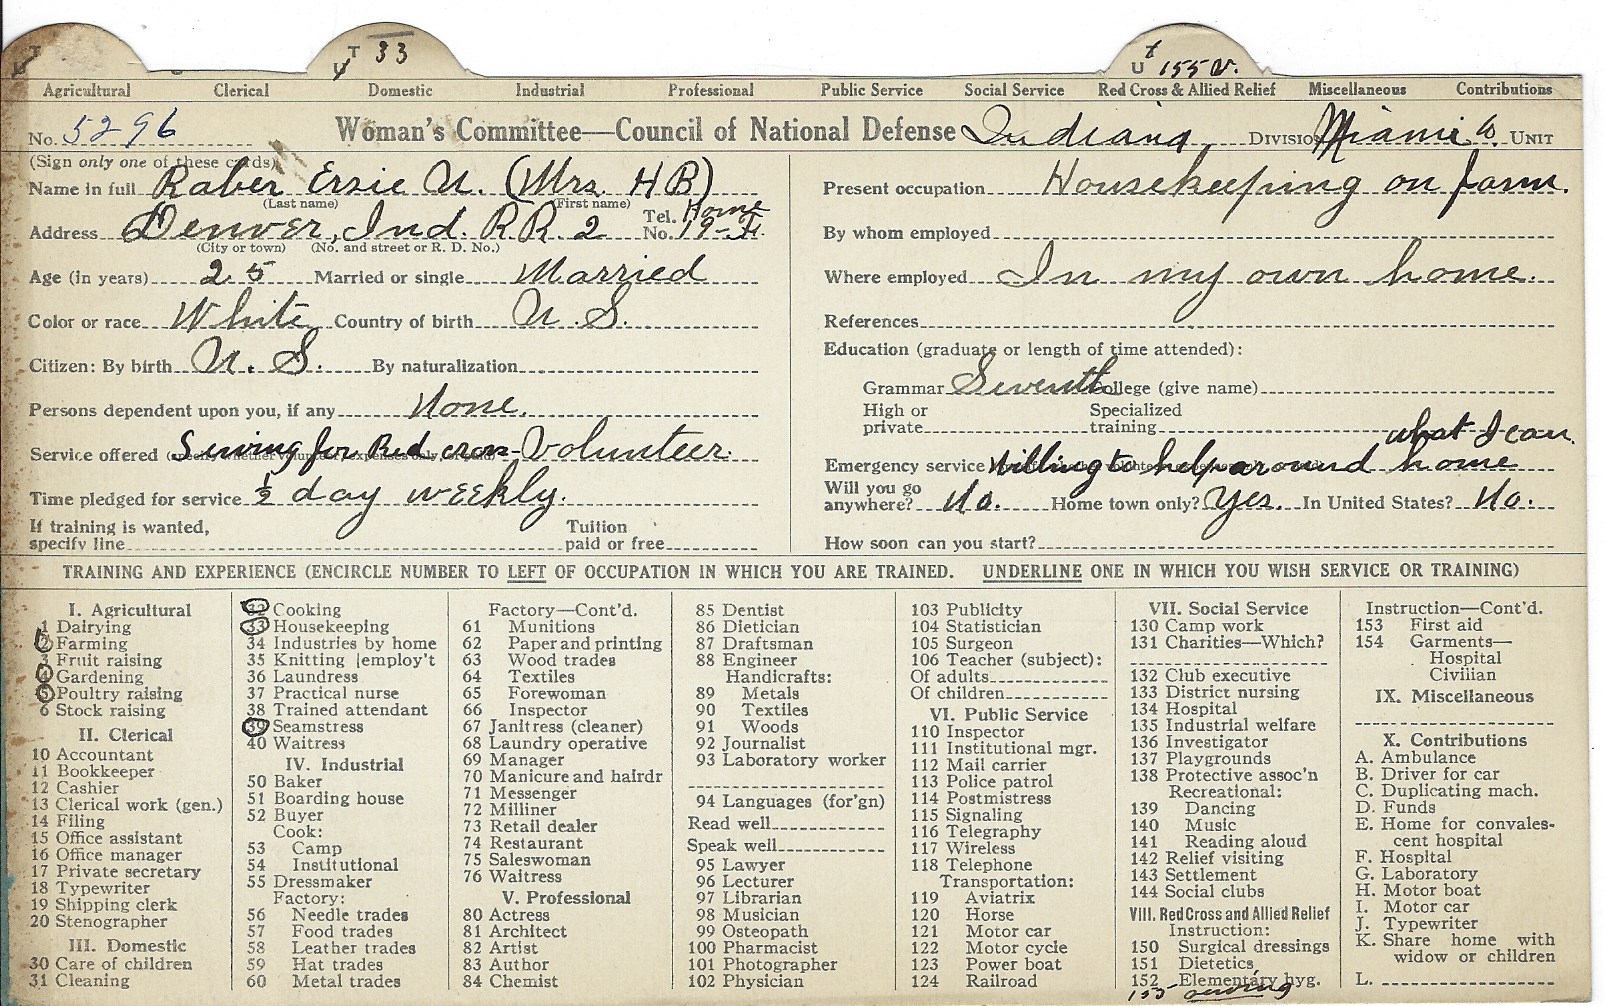 T U
T U 33
T U 155 V.
Agricultural Clerical Domestic Industrial Professional Public Service Social Service Red Cross & Allied Relief Miscellaneous Contributions
No. 5296 Woman's Committee—Council of National Defense Indiana Division Miami Co. Unit
(Sign only one of these cards)
Name in full Raber Ersie N. (Mrs. H B)
(Last name) (First name)
Address Denver, Ind. R R 2 Tel. No. Home 19-
(City or town) (No. and street or R. D. No.)
Age (in years) 25 Married or single Married
Color or race White Country of birth U. S.
Citizen: By birth U. S. By naturalization
Persons dependent upon you, if any None.
Service offered Sewing for Red cross-Volunteer.
Time pledged for service ½ day weekly.
If training is wanted, specify line Tuition paid or free
Present occupation Housekeeping on farm.
By whom employed
Where employed In my own home.
References
Education (graduate or length of time attended):
Grammar Seventh College (give name)
High or private Specialized training
what I can.
Emergency service Willing to help around home
Will you go anywhere? No. Home town only? Yes. In United States? No.
How soon can you start?
TRAINING AND EXPERIENCE (ENCIRCLE NUMBER TO LEFT OF OCCUPATION IN WHICH YOU ARE TRAINED. UNDERLINE ONE IN WHICH YOU WISH SERVICE OR TRAINING)
I. Agricultural
1 Dairying
2 Farming
3 Fruit raising
4 Gardening
5 Poultry raising
6 Stock raising
II. Clerical
10 Accountant
11 Bookkeeper
12 Cashier
13 Clerical work (gen.)
14 Filing
15 Office assistant
16 Office manager
17 Private secretary
18 Typewriter
19 Shipping clerk
20 Stenographer
III. Domestic
30 Care of children
31 Cleaning
32 Cooking
33 Housekeeping
34 Industries by home
35 Knitting [employ't
36 Laundress
37 Practical nurse
38 Trained attendant
39 Seamstress
40 Waitress
IV. Industrial
50 Baker
51 Boarding house
52 Buyer
Cook:
53 Camp
54 Institutional
55 Dressmaker
Factory:
56 Needle trades
57 Food trades
58 Leather trades
59 Hat trades
60 Metal trades
Factory—Cont'd.
61 Munitions
62 Paper and printing
63 Wood trades
64 Textiles
65 Forewoman
66 Inspector
67 Janitress (cleaner)
68 Laundry operative
69 Manager
70 Manicure and hairdr
71 Messenger
72 Milliner
73 Retail dealer
74 Restaurant
75 Saleswoman
76 Waitress
V. Professional
80 Actress
81 Architect
82 Artist
83 Author
84 Chemist
85 Dentist
86 Dietician
87 Draftsman
88 Engineer
Handicrafts:
89 Metals
90 Textiles
91 Woods
92 Journalist
93 Laboratory worker
94 Languages (for'gn)
Read well
Speak well
95 Lawyer
96 Lecturer
97 Librarian
98 Musician
99 Osteopath
100 Pharmacist
101 Photographer
102 Physician
103 Publicity
104 Statistician
105 Surgeon
106 Teacher (subject):
Of adults
Of children
VI. Public Service
110 Inspector
111 Institutional mgr.
112 Mail carrier
113 Police patrol
114 Postmistress
115 Signaling
116 Telegraphy
117 Wireless
118 Telephone
Transportation:
119 Aviatrix
120 Horse
121 Motor car
122 Motor cycle
123 Power boat
124 Railroad
VII. Social Service
130 Camp work
131 Charities—Which?
132 Club executive
133 District nursing
134 Hospital
135 Industrial welfare
136 Investigator
137 Playgrounds
138 Protective assoc'n
Recreational:
139 Dancing
140 Music
141 Reading aloud
142 Relief visiting
143 Settlement
144 Social clubs
VIII. Red Cross and Allied Relief
Instruction:
150 Surgical dressings
151 Dietetics
152 Elementary hyg.
155 sewing
Instruction—Cont'd.
153 First aid
154 Garments—
Hospital
Civilian
IX. Miscellaneous
X. Contributions
A. Ambulance
B. Driver for car
C. Duplicating mach.
D. Funds
E. Home for convales-
cent hospital
F. Hospital
G. Laboratory
H. Motor boat
I. Motor car
J. Typewriter
K. Share home with
widow or children
L.